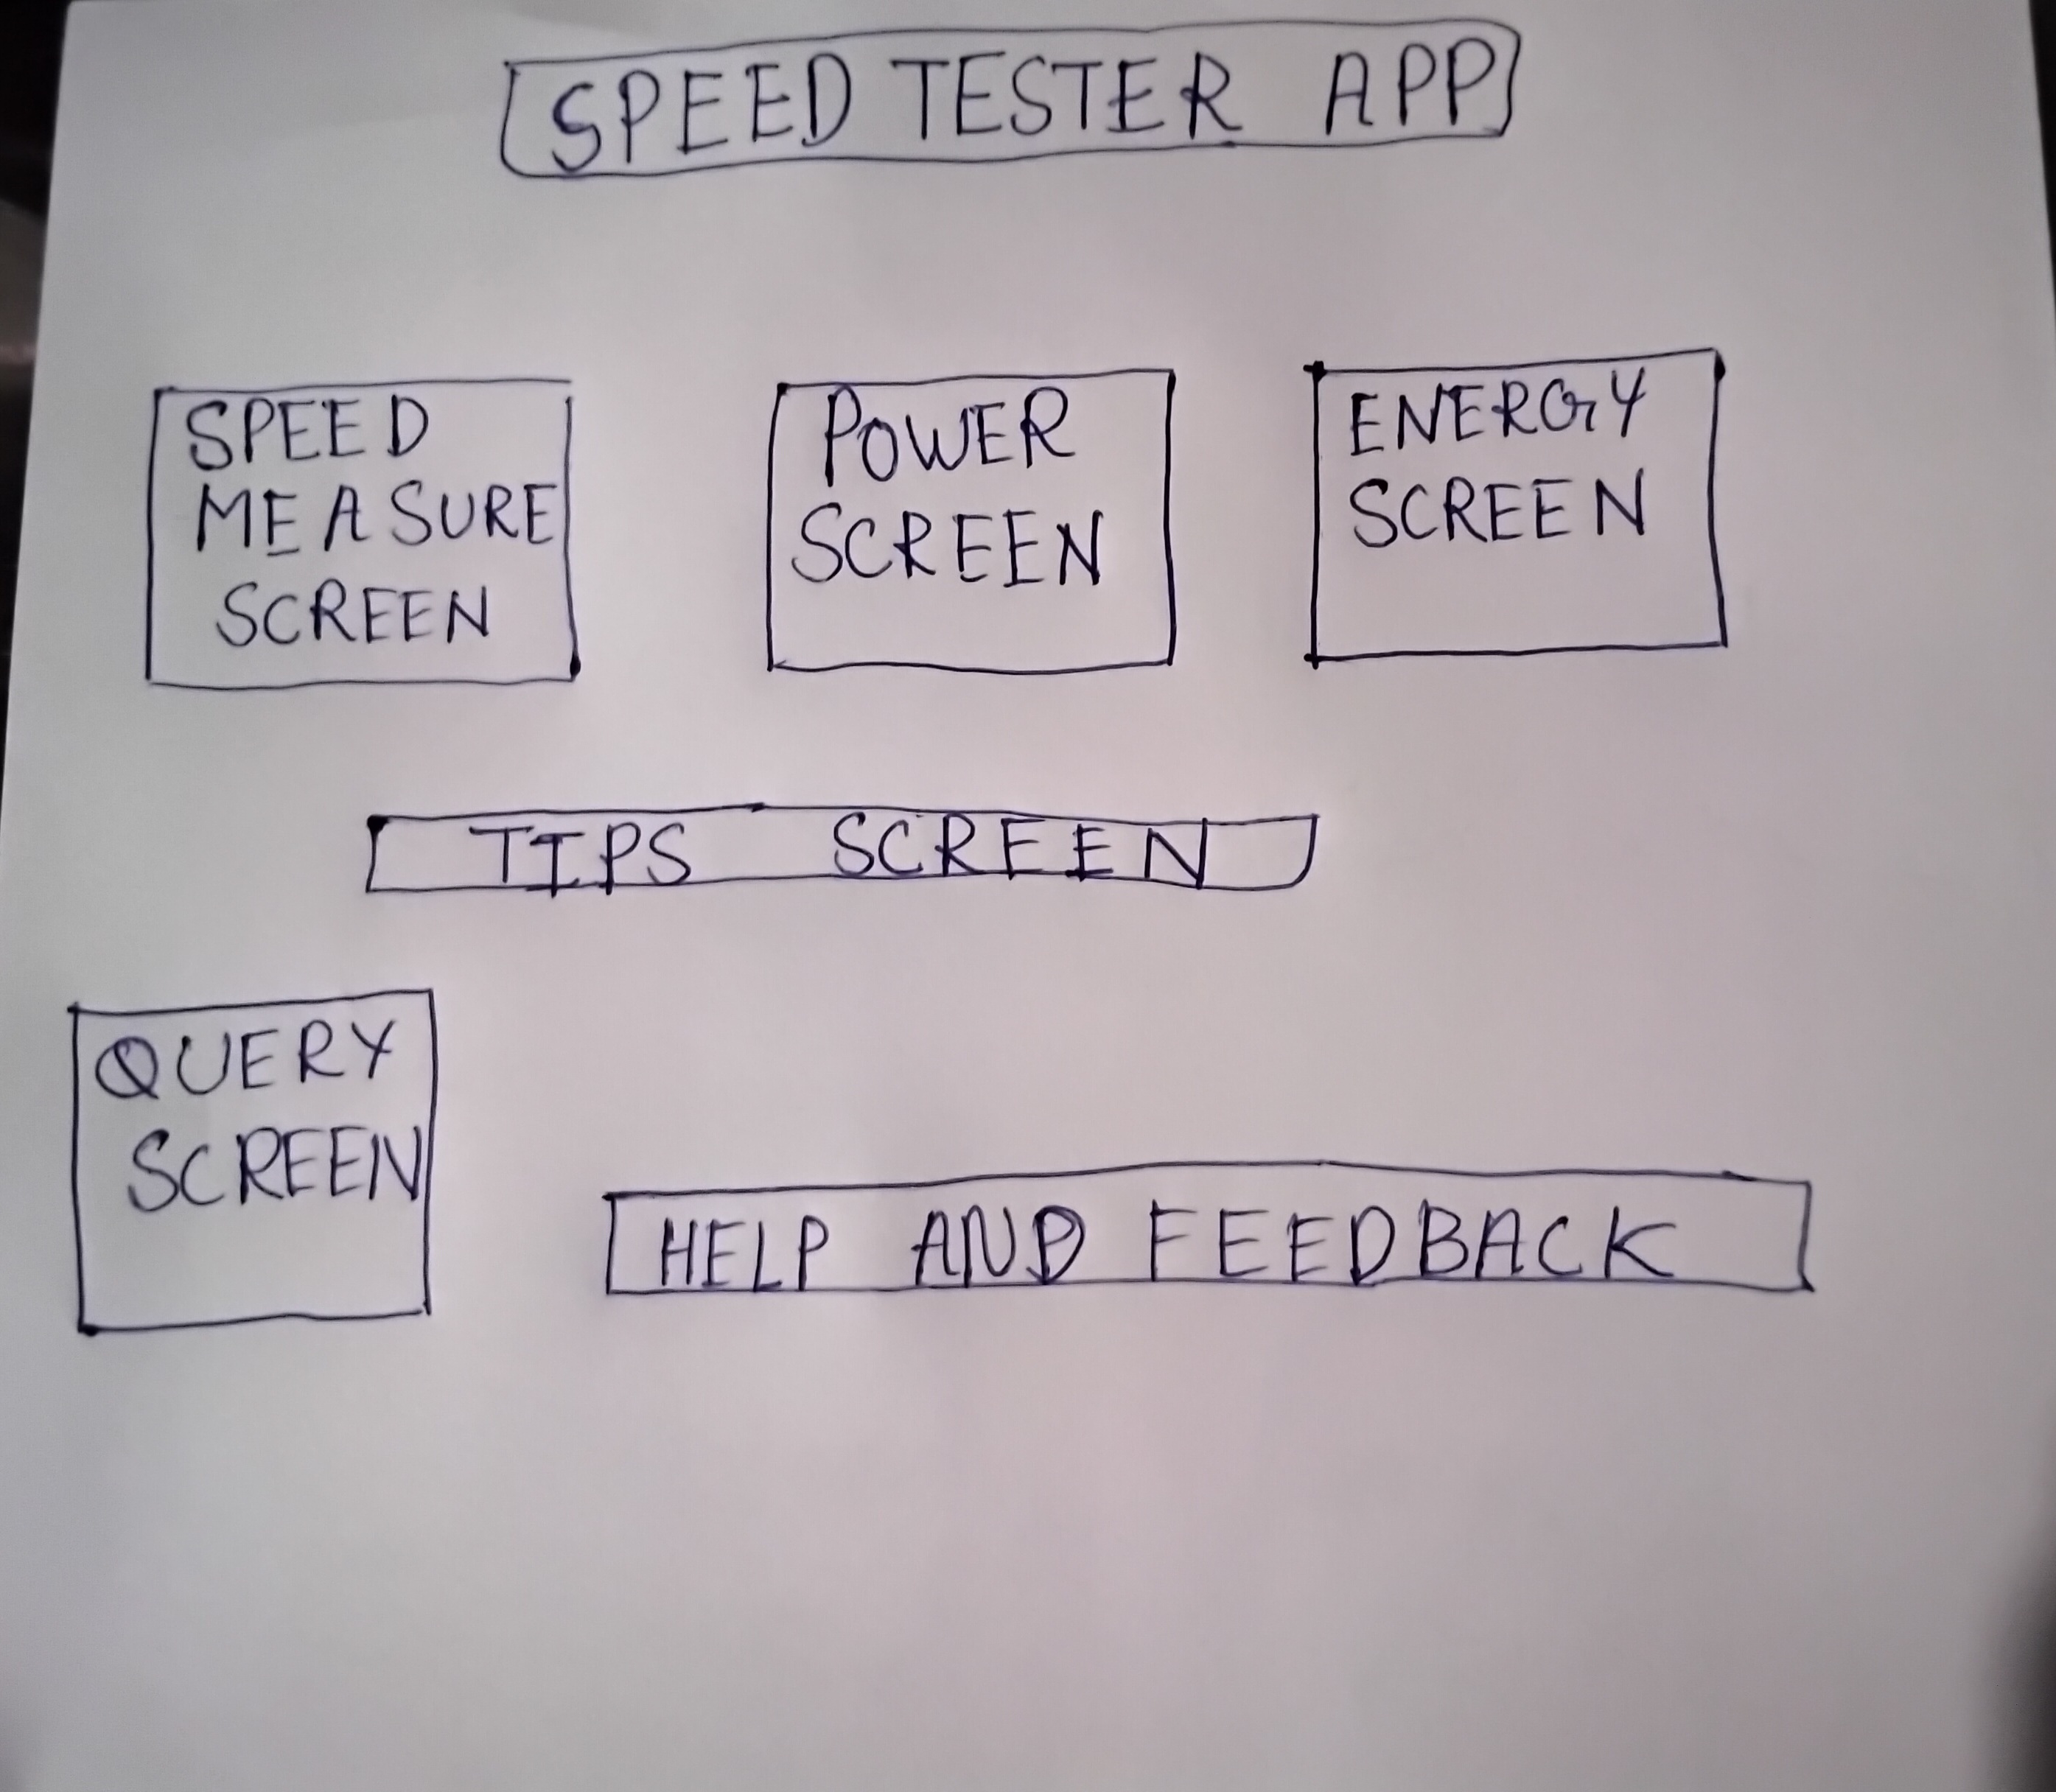 SPEED TESTER APP
SPEED
MEASURE
SCREEN
POWER
SCREEN
ENERGY
SCREEN
TIPS SCREEN
QUERY
SCREEN
HELP AND FEEDBACK